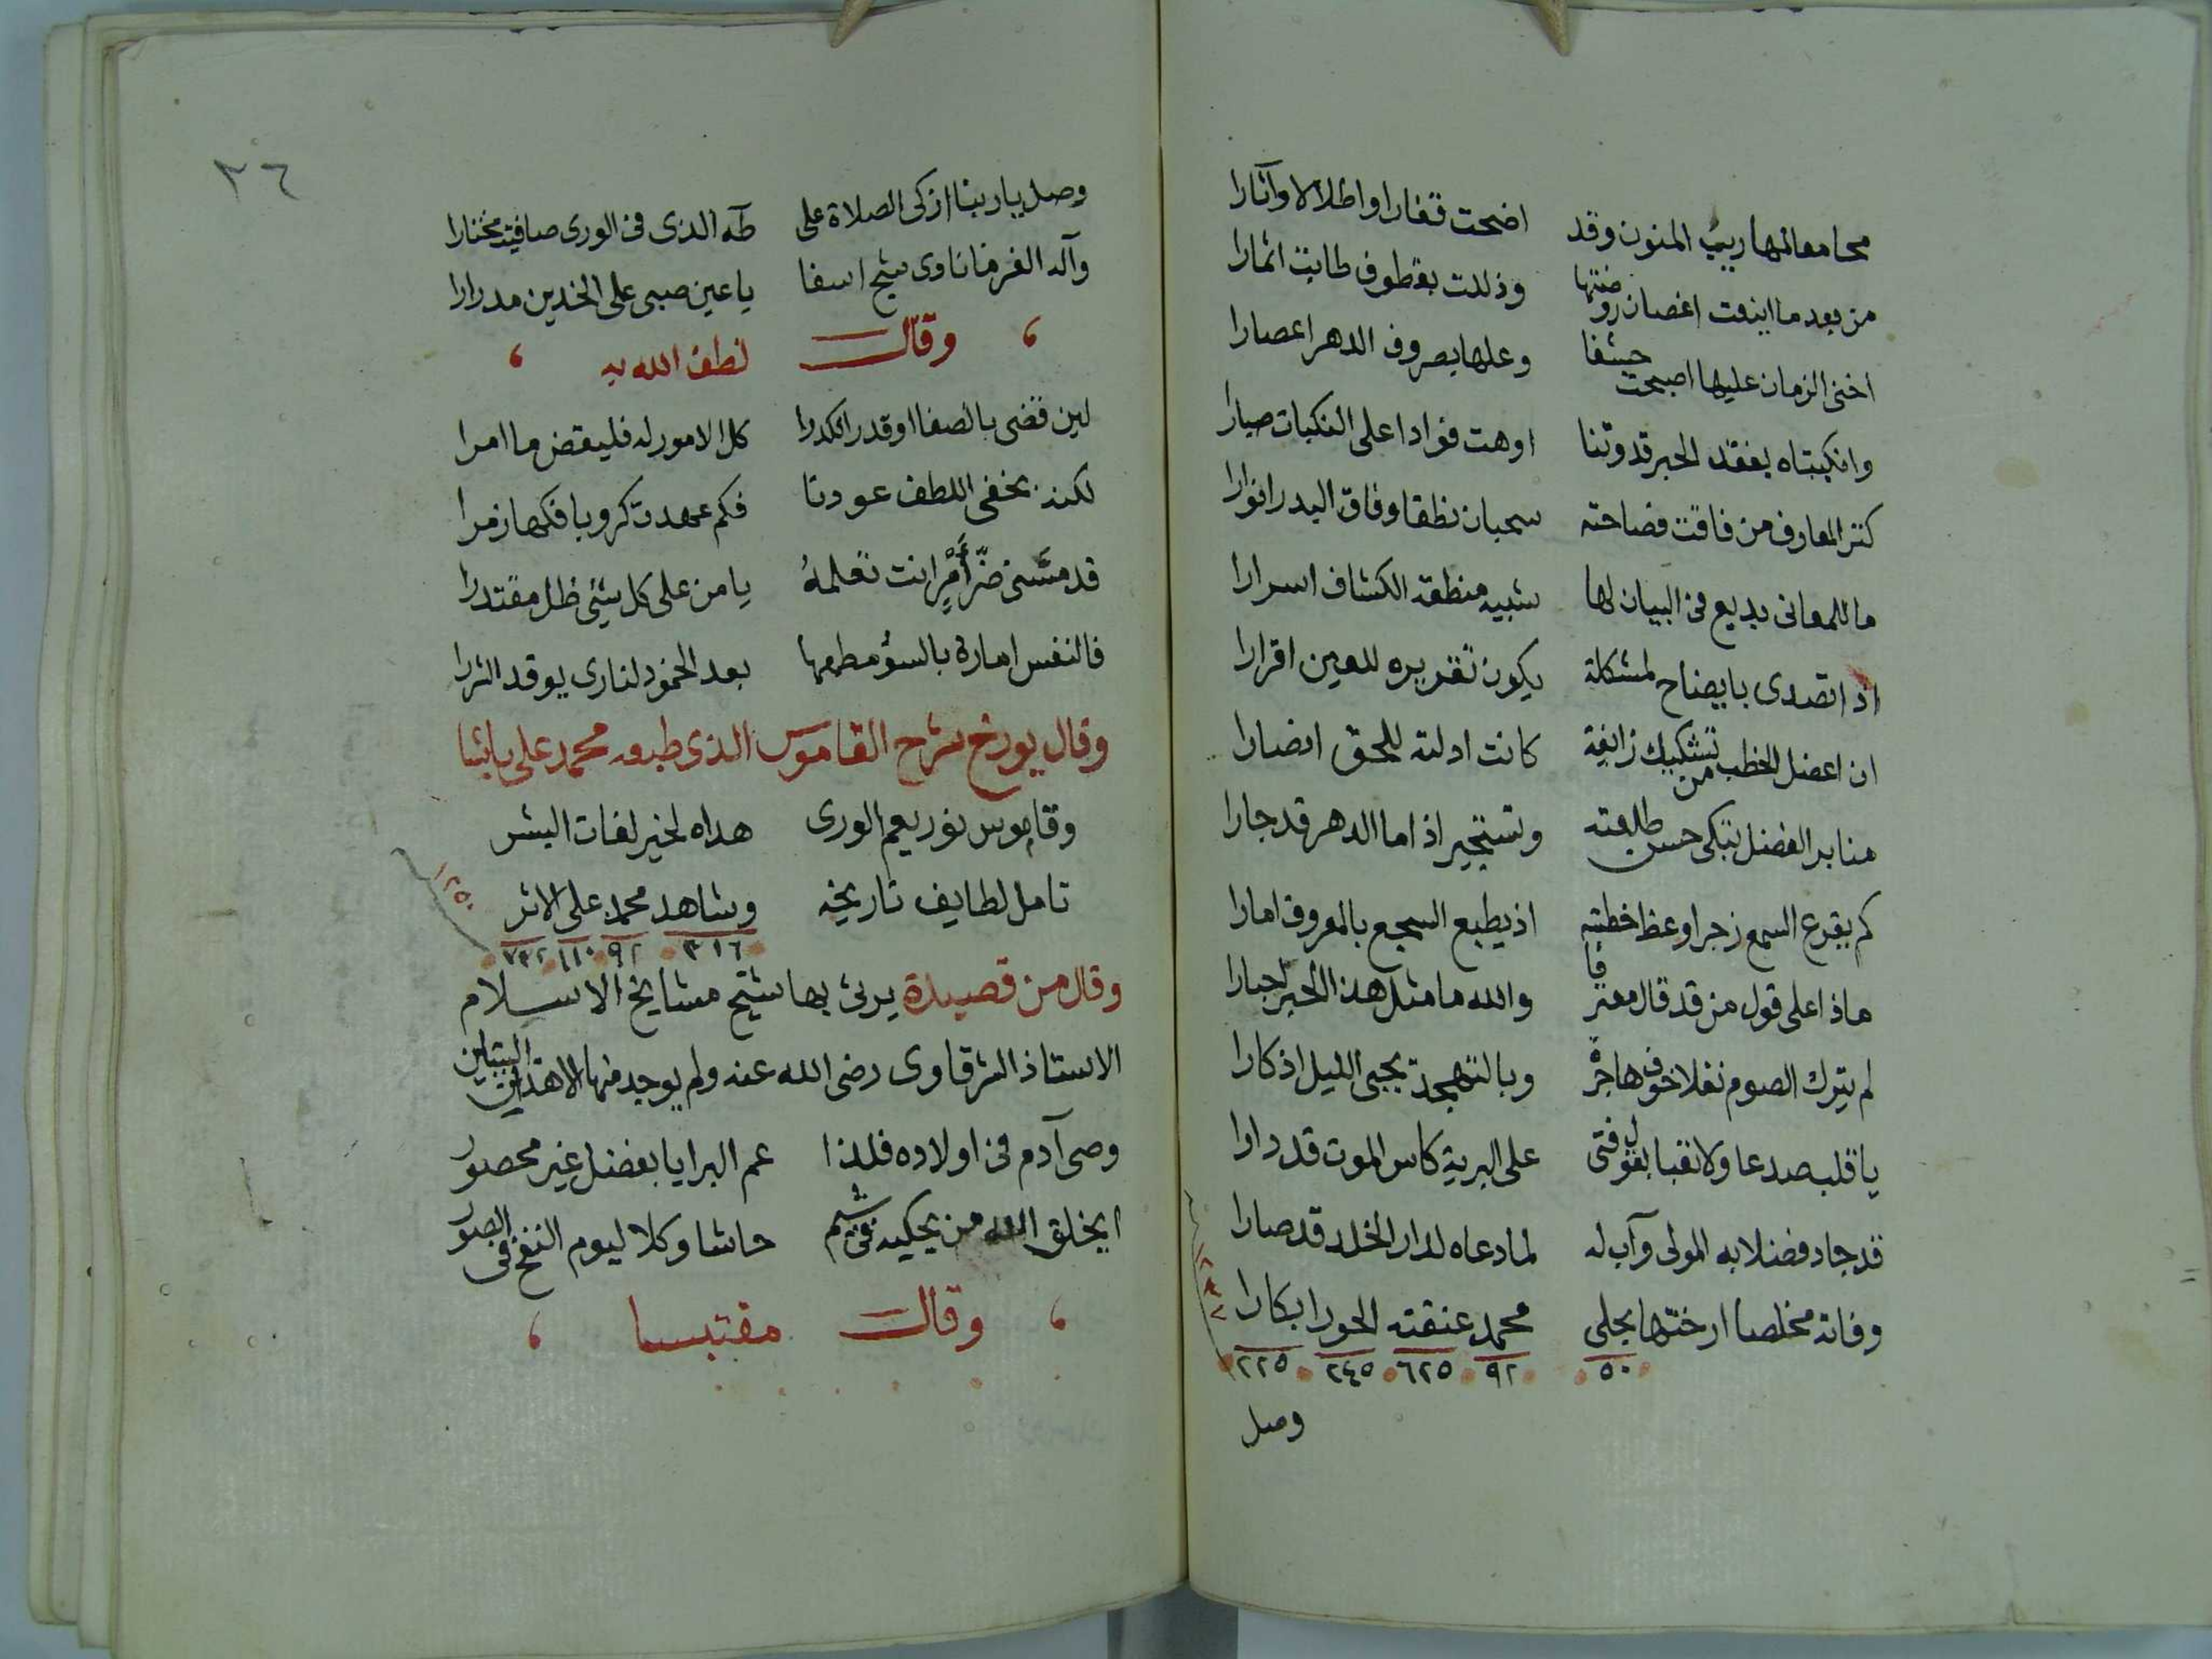 محا معالمها ريب المنون وقد اضحت قفارا واطلالا وآثارا
من بعد ما اينعت اغصان روضتها وذللت بقطوف طابت اثمارا
اخنى الزمان عليها اصبحت حشفا وعلها بصروف الدهر اعصارا
وانكبتاه بفقد الحبر قدوتنا اوهت فوادا على النكبات صبارا
كنز المعارف من فاقت فصاحته سحبان نطقا وفاق البدر انوارا
ما للمعانى بديع فى البيان لها شبيه منطقه الكشاف اسرارا
اذا تصدى بايضاح لمشكلة يكون تقريره للعين اقرارا
ان اعضل الخطب من تشكيك زائغة كانت ادلته للحق انصارا
منابر الفضل تبكى حسن طلعته وتستجير اذا ما الدهر قد جارا
كم يقرع السمع زجرا وعظ خطبته اذ يطبع السجع بالمعروف امارا
ماذا على قول من قد قال معترفا والله ما مثل هذا الحبر احبارا
لم يترك الصوم نفلا خوف هاجرة وبالتهجد يحيى الليل اذكارا
يا قلب صدعا ولا تعبا بقول فتى على البرية كاس الموت قد دارا
قد جاد فضلا به المولى وآب له لما دعاه لدار الخلد قد صارا
وفاته مخلصا ارختها بجلى محمد عنقته الحور ابكارا
٥٠ ٩٢ ٦٢٥ ٢٤٥ ٢٢٥
١٢٣٧
وصل
٢٦
وصل يا ربنا ازكى الصلاة على طه الذى فى الورى صافيته مختارا
وآله الغر ما نادى شج اسفا يا عين صبى على الخدين مدرارا
وقال لطف الله به
لين قضى بالصفا او قدر الكدرا كل الامور له فليقض ما امرا
لكنه بخفى اللطف عودنا فكم عهدت كروبا فكها زمرا
قد مسنى ضر أمر انت تعلمه يا من على كل شيئ ظل مقتدرا
فالنفس امارة بالسؤ مطمعها بعد الخمود لنارى يوقد الشررا
وقال يورخ شرح القاموس الذى طبعه محمد على باشا
وقاموس نور يعم الورى هداه لخير لغات البشر
تامل لطايف تاريخه وشاهد محمد على الاثر
٣١٦ ٩٢ ١١٠ ٧٣٢
١٢٥٠
وقال من قصيدة يرثى بها شيخ مشايخ الاسلام
الاستاذ الشرقاوى رضى الله عنه ولم يوجد منها الا هذين البيتين
وصى آدم فى اولاده فلذا عم البرايا بفضل غير محصور
ايخلق الله من يحكيه فى شيم حاشا وكلا ليوم النفخ فى الصور
وقال مقتبسا